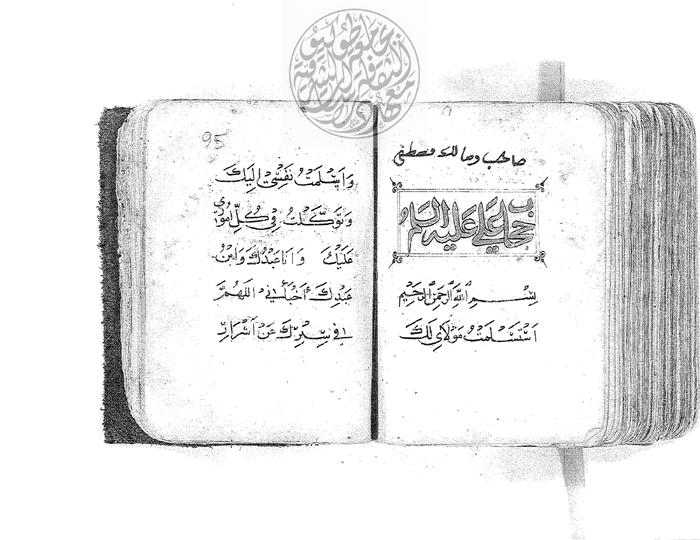 صاحب ومالك مصطفى
حجاب علي عليه السلم
بِسْمِ اللَّهِ الرَّحْمَنِ الرَّحِيمِ
اَسْتَسْلَمْتُ مَوْلَايَ لَكَ
95
وَاَسْلَمْتُ نَفْسِي اِلَيْكَ
وَتَوَكَّلْتُ فِي كُلِّ اُمُورِي
عَلَيْكَ وَاَنَا عَبْدُكَ وَابْنُ
عَبْدِكَ اَخْبَأْنِي اَللّٰهُمَّ
فِي سِتْرِكَ عَنْ اَشْرَارِ